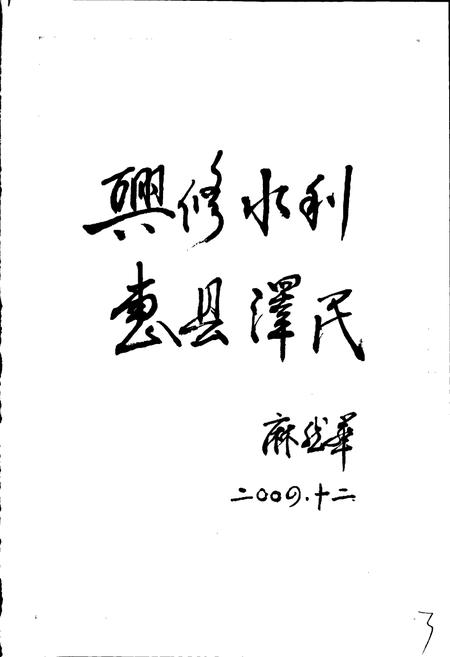 興修水利
惠县澤民
麻
華
二〇〇四.十二
3